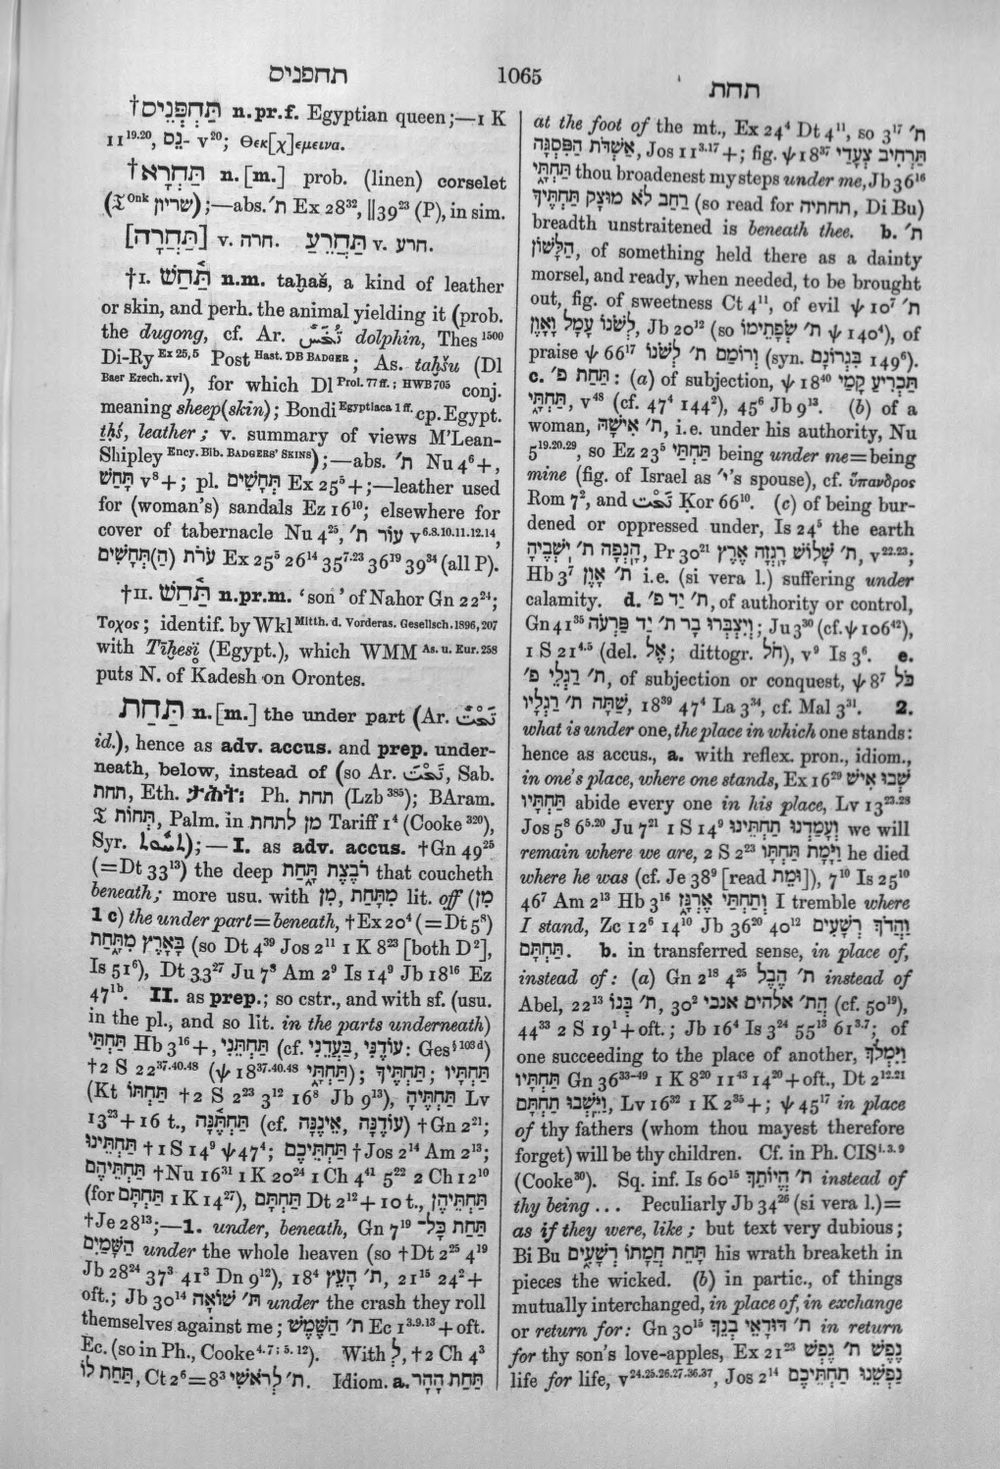 תחפניס
1065
תחת
†תַּחְפְּנֵיס n.pr.f. Egyptian queen;—1 K
11 19.20, ־נֵס v 20; Θεκ[χ]εμεινα.
†תַּחְרָא n.[m.] prob. (linen) corselet
(𝔗 Onk שריון);—abs. ת׳ Ex 28 32, ‖39 23 (P), in sim.
[תַּחֲרָה] v. חרה. תַּחְרֵעַ v. חרע.
†I. תַּחַשׁ n.m. taḥaš, a kind of leather
or skin, and perh. the animal yielding it (prob.
the dugong, cf. Ar. تُخَس dolphin, Thes 1500
Di-Ry Ex 25, 5 Post Hast. DB BADGER; As. taḫšu (Dl
Baer Ezech. xvi), for which Dl Prol. 77 ff.; HWB 705 conj.
meaning sheep(skin); Bondi Egyptiaca 1 ff. cp. Egypt.
tḥś, leather; v. summary of views M'Lean-
Shipley Ency. Bib. BADGERS' SKINS);—abs. ת׳ Nu 4 6 +,
תָּחַשׁ v 8 +; pl. תְּחָשִׁים Ex 25 5 +;—leather used
for (woman's) sandals Ez 16 10; elsewhere for
cover of tabernacle Nu 4 25, עוֹר ת׳ v 6.8.10.11.12.14,
עֹרֹת (הַ)תְּחָשִׁים Ex 25 5 26 14 35 7.23 36 19 39 34 (all P).
†II. תַּחַשׁ n.pr.m. 'son' of Nahor Gn 22 24;
Τοχος; identif. by Wkl Mitth. d. Vorderas. Gesellsch. 1896, 207
with Tiḫesi (Egypt.), which WMM As. u. Eur. 258
puts N. of Kadesh on Orontes.
תַּחַת n.[m.] the under part (Ar. تَحْت
id.), hence as adv. accus. and prep. under-
neath, below, instead of (so Ar. تَحْتَ, Sab.
תחת, Eth. ታሕተ: Ph. תחת (Lzb 385); BAram.
𝔗 תְּחוֹת, Palm. in מן לתחת Tariff 1 4 (Cooke 320),
Syr.);—I. as adv. accus. †Gn 49 25
(=Dt 33 13) the deep רֹבֶצֶת תָּחַת that coucheth
beneath; more usu. with מִן, מִתַּחַת lit. off (מִן
1 c) the under part=beneath, †Ex 20 4 (=Dt 5 8)
בָּאָרֶץ מִתַּחַת (so Dt 4 39 Jos 2 11 1 K 8 23 [both D 2],
Is 51 6), Dt 33 27 Ju 7 8 Am 2 9 Is 14 9 Jb 18 16 Ez
47 1b. II. as prep.; so cstr., and with sf. (usu.
in the pl., and so lit. in the parts underneath)
תַּחְתַּי Hb 3 16 +, תַּחְתֵּנִי (cf. בַּעֲדֵנִי, עוֹדֶנִּי: Ges § 103 d)
†2 S 22 37.40.48 (ψ 18 37.40.48 תַּחְתָּי); תַּחְתֶּיךָ; תַּחְתָּיו
(Kt תַּחְתּוֹ †2 S 2 23 3 12 16 8 Jb 9 13), תַּחְתֶּיהָ Lv
13 23 + 16 t., תַּחְתֶּנָּה (cf. עוֹדֶנָּה, אֵינֶנָּה) †Gn 2 21;
תַּחְתֵּינוּ †1 S 14 9 ψ 47 4; תַּחְתֵּיכֶם †Jos 2 14 Am 2 13;
תַּחְתֵּיהֶם †Nu 16 31 1 K 20 24 1 Ch 4 41 5 22 2 Ch 12 10
(for תַּחְתָּם 1 K 14 27), תַּחְתָּם Dt 2 12 + 10 t., תַּחְתֵּיהֶן
†Je 28 13;—1. under, beneath, Gn 7 19 תַּחַת כָּל־
הַשָּׁמַיִם under the whole heaven (so †Dt 2 25 4 19
Jb 28 24 37 3 41 3 Dn 9 12), 18 4 ת׳ הָעֵץ, 21 15 24 2 +
oft.; Jb 30 14 ת׳ שׁוֹאָה under the crash they roll
themselves against me; ת׳ הַשֶּׁמֶשׁ Ec 1 3.9.13 + oft.
Ec. (so in Ph., Cooke 4.7; 5. 12). With לְ, †2 Ch 4 3
תַּחַת לוֹ, Ct 2 6 = 8 3 ת׳ לְרֹאשִׁי. Idiom. a. תַּחַת הָהָר
at the foot of the mt., Ex 24 4 Dt 4 11, so 3 17 ת׳
אַשְׁדֹּת הַפִּסְגָּה, Jos 11 3.17 +; fig. ψ 18 37 תַּרְחִיב צַעֲדִי
תַּחְתָּי thou broadenest my steps under me, Jb 36 16
רַחַב לֹא מוּצָק תַּחְתֶּיךָ (so read for תחתיה, Di Bu)
breadth unstraitened is beneath thee. b. ת׳
הַלָּשׁוֹן, of something held there as a dainty
morsel, and ready, when needed, to be brought
out, fig. of sweetness Ct 4 11, of evil ψ 10 7 ת׳
לְשׁנוֹ עָמָל וָאָוֶן, Jb 20 12 (so ת׳ שְׂפָתֵימוֹ ψ 140 4), of
praise ψ 66 17 וְרוֹמַם ת׳ לְשׁנוֹ (syn. בִּגְרוֹנָם 149 6).
c. תַּחַת פ׳: (a) of subjection, ψ 18 40 תַּכְרִיעַ קָמַי
תַּחְתָּי, v 48 (cf. 47 4 144 2), 45 6 Jb 9 13. (b) of a
woman, ת׳ אִישָׁהּ, i.e. under his authority, Nu
5 19.20.29, so Ez 23 5 תַּחְתַּי being under me=being
mine (fig. of Israel as י׳'s spouse), cf. ὕπανδρος
Rom 7 2, and تَحْتَ Ḳor 66 10. (c) of being bur-
dened or oppressed under, Is 24 5 the earth
חָנְפָה ת׳ יֹשְׁבֶיהָ, Pr 30 21 ת׳ שָׁלוֹשׁ רָגְזָה אֶרֶץ, v 22.23;
Hb 3 7 ת׳ אָוֶן i.e. (si vera l.) suffering under
calamity. d. ת׳ יַד פ׳, of authority or control,
Gn 41 35 וְיִצְבְּרוּ בָר ת׳ יַד פַּרְעֹה; Ju 3 30 (cf. ψ 106 42),
1 S 21 4.5 (del. אֶל; dittogr. חֹל), v 9 Is 3 6. e.
ת׳ רַגְלֵי פ׳, of subjection or conquest, ψ 8 7 כֹּל
שַׁתָּה ת׳ רַגְלָיו, 18 39 47 4 La 3 34, cf. Mal 3 31. 2.
what is under one, the place in which one stands:
hence as accus., a. with reflex. pron., idiom.,
in one's place, where one stands, Ex 16 29 שְׁבוּ אִישׁ
תַּחְתָּיו abide every one in his place, Lv 13 23.28
Jos 5 8 6 5.20 Ju 7 21 1 S 14 9 וְעָמַדְנוּ תַחְתֵּינוּ we will
remain where we are, 2 S 2 23 וַיָּמָת תַּחְתָּו he died
where he was (cf. Je 38 9 [read וּמֵת]), 7 10 Is 25 10
46 7 Am 2 13 Hb 3 16 וְתַחְתַּי אֶרְגָּז I tremble where
I stand, Zc 12 6 14 10 Jb 36 20 40 12 וַהֲדֹךְ רְשָׁעִים
תַּחְתָּם. b. in transferred sense, in place of,
instead of: (a) Gn 2 18 4 25 ת׳ הֶבֶל instead of
Abel, 22 13 ת׳ בְּנוֹ, 30 2 הֲת׳ אלהים אנכי (cf. 50 19),
44 33 2 S 19 1 + oft.; Jb 16 4 Is 3 24 55 13 61 3.7; of
one succeeding to the place of another, וַיִּמְלֹךְ
תַּחְתָּיו Gn 36 33–49 1 K 8 20 11 43 14 20 + oft., Dt 2 12.21
וַיֵּשְׁבוּ תַחְתָּם, Lv 16 32 1 K 2 35 +; ψ 45 17 in place
of thy fathers (whom thou mayest therefore
forget) will be thy children. Cf. in Ph. CIS i. 3. 9
(Cooke 30). Sq. inf. Is 60 15 ת׳ הֱיוֹתֵךְ instead of
thy being ... Peculiarly Jb 34 26 (si vera l.)=
as if they were, like; but text very dubious;
Bi Bu תָּחֵת חֲמָתוֹ רְשָׁעִים his wrath breaketh in
pieces the wicked. (b) in partic., of things
mutually interchanged, in place of, in exchange
or return for: Gn 30 15 ת׳ דּוּדָאֵי בְנֵךְ in return
for thy son's love-apples, Ex 21 23 נֶפֶשׁ ת׳ נֶפֶשׁ
life for life, v 24.25.26.27.36.37, Jos 2 14 נַפְשֵׁנוּ תַחְתֵּיכֶם